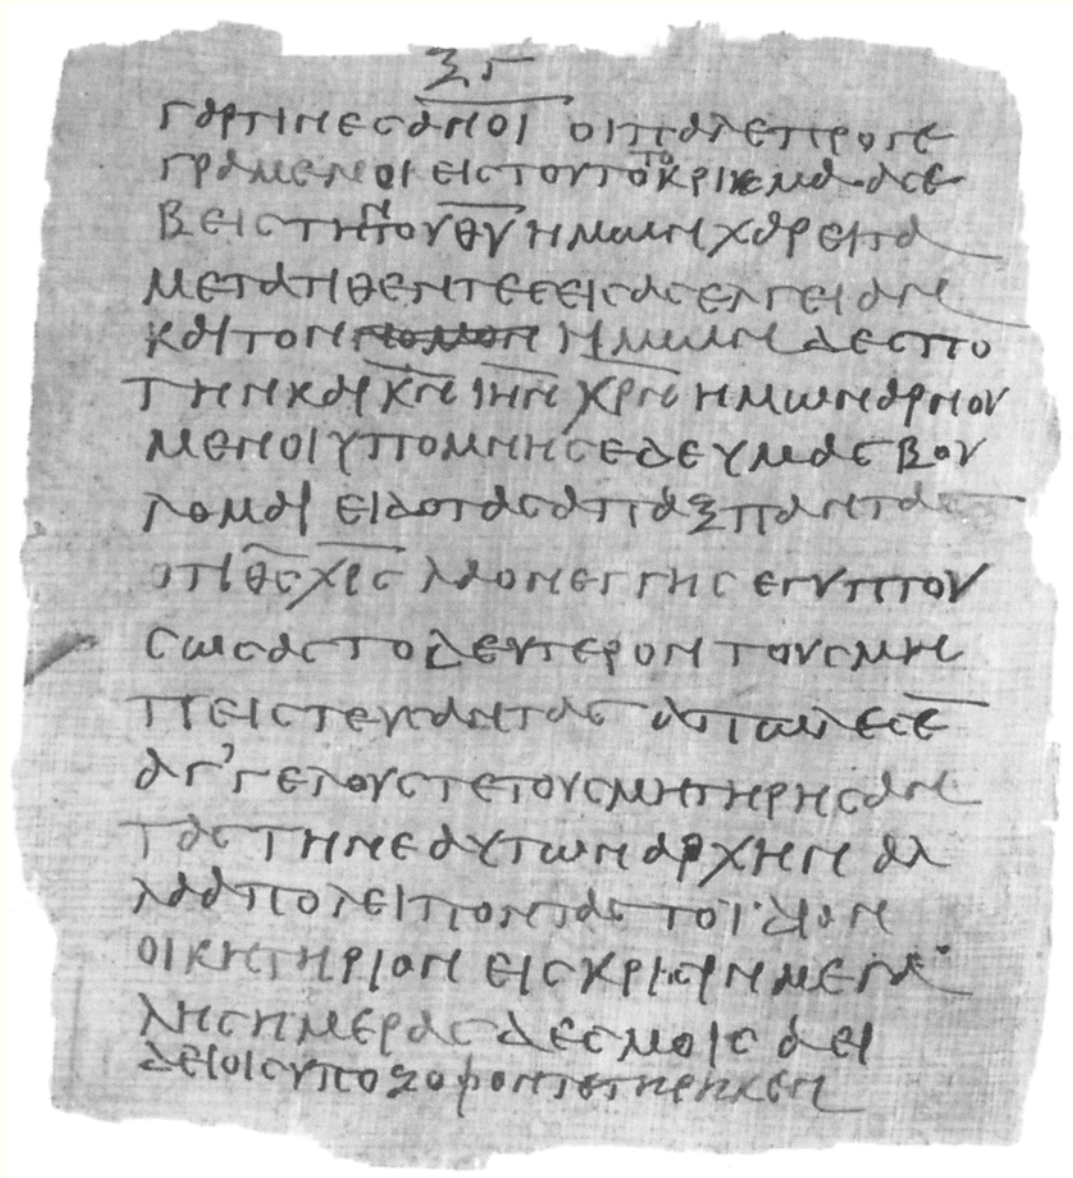 ξγ
γαρτινεσανοι οιπαλεπρογε
γραμενοι ειστουτοτοκριμα ασε
βειστηντουθυημωνχαρειτα
μετατιθεντεσεισασελγειαν
καιτοννομονημωνδεσπο
τηνκαικνιηνχρνημωναρνου
μενοιυπομνησεδευμασβου
λομαι ειδοτασαπαξπαντας
οτιθσχρσ λαονεγγησεγυπτου
σωσαστοδευτερον τουσμη
πειστευσαντασ απωλεσε
αγ'γελουστετουσμητηρησαν
τασ την εαυτων αρχην αλ
λααπολειποντας το ϊδιον
οικητηριον εισκρισινμεγα
λησημερασδεσμοισ αει
δειοισυποζοφοντετηρηκεν